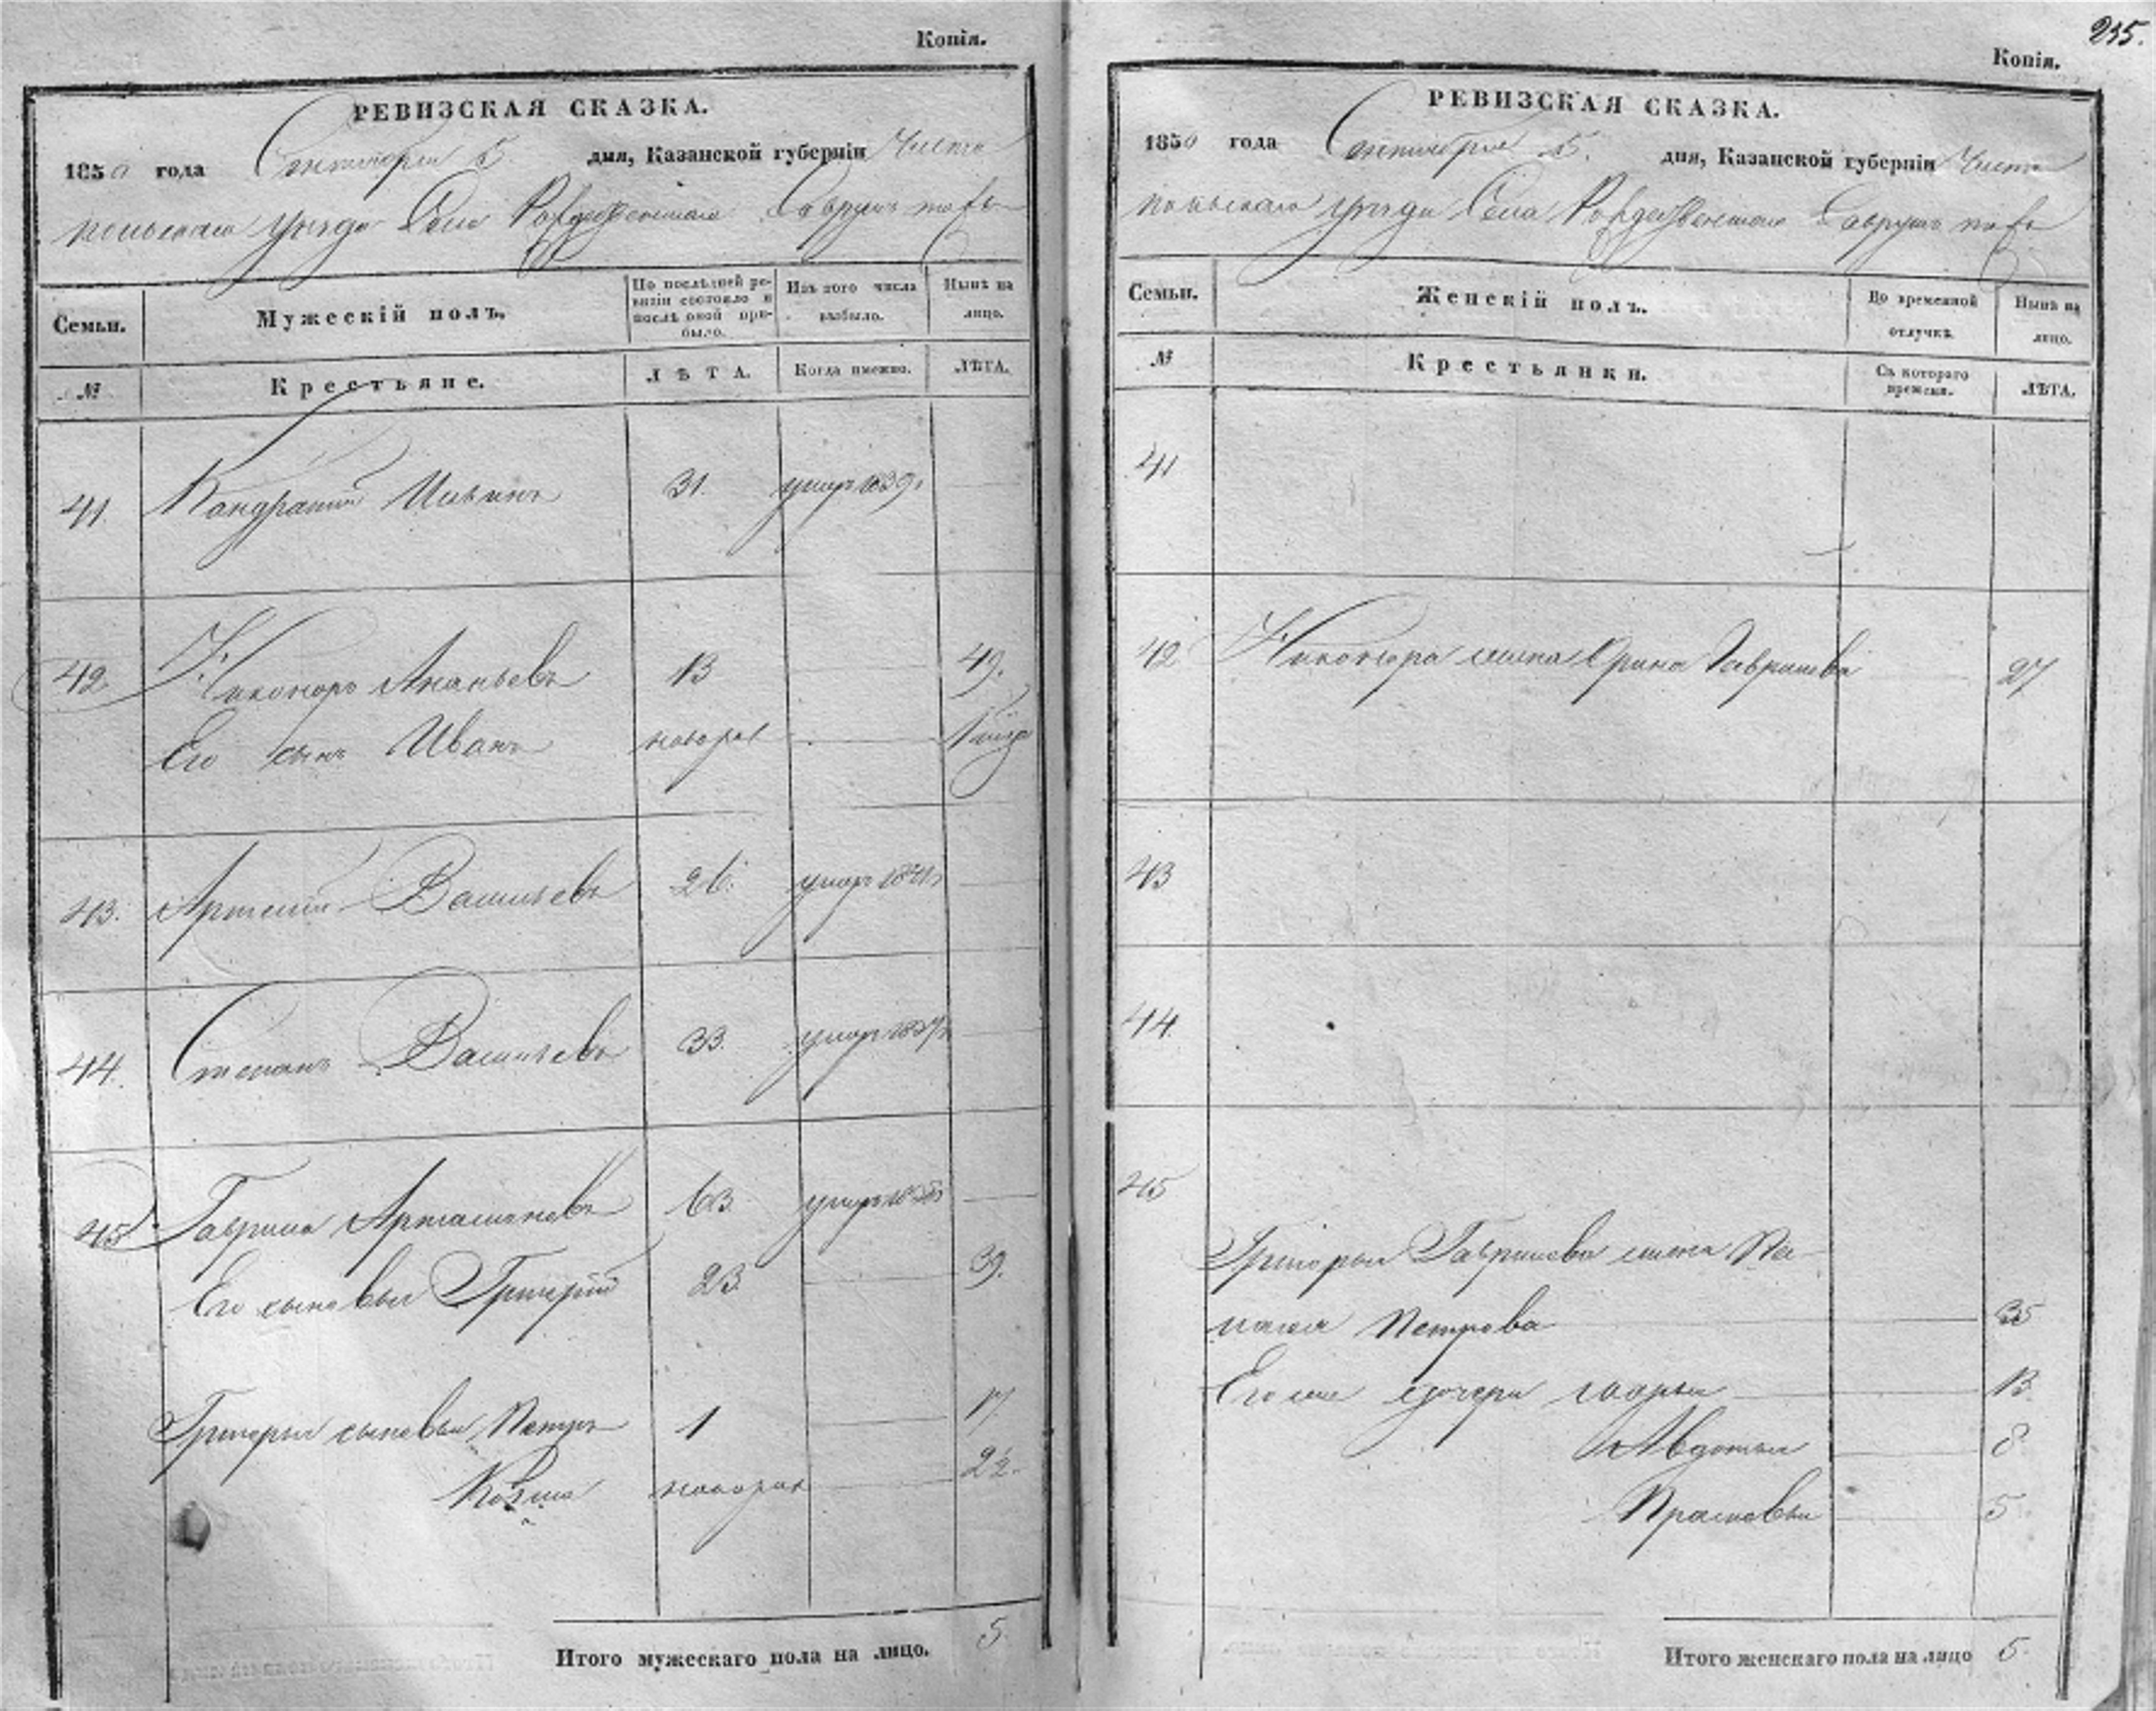 Копія.
РЕВИЗСКАЯ СКАЗКА.
1850 года Сентября 5 дня, Казанской губерніи Чисто
польскаго уезда Села Рождественскаго
Семьи.
Мужескій полъ.
По послѣдней ре-
визіи состояло и
послѣ оной при-
было.
Изъ того числа
выбыло.
Нынѣ на
лицо.
№
Крестьяне.
ЛѢТА.
Когда именно.
ЛѢТА.
41. Кондратий 31. умер 1839.
42. Никоноръ Ананьевъ 13 49.
Его сынъ Иванъ новорож
43. Артемий Васильевъ 26. умеръ
44. Степанъ Васильевъ 33. умеръ
45 Гаврила 63. умеръ
Его сыновья Григорий 23. 39.
Григорья сыновья Петръ 1 17.
Козма новорож
Итого мужескаго пола на лицо. 5.
235.
Копія.
РЕВИЗСКАЯ СКАЗКА.
1850 года Сентября 5. дня, Казанской губерніи Чисто
польскаго уезда Села Рождественскаго
Семьи.
Женскій полъ.
Во временной
отлучкѣ
Нынѣ на
лицо.
№
Крестьянки.
Съ котораго
времени.
ЛѢТА.
41
42 Никонора жена Ирина Гаврилова 27
43
44.
45
Григорья Гаврилова жена Пе-
лагея Петрова 35
Его же дочери Марья 13.
Авдотья 8
Прасковья 5
Итого женскаго пола на лицо 5.